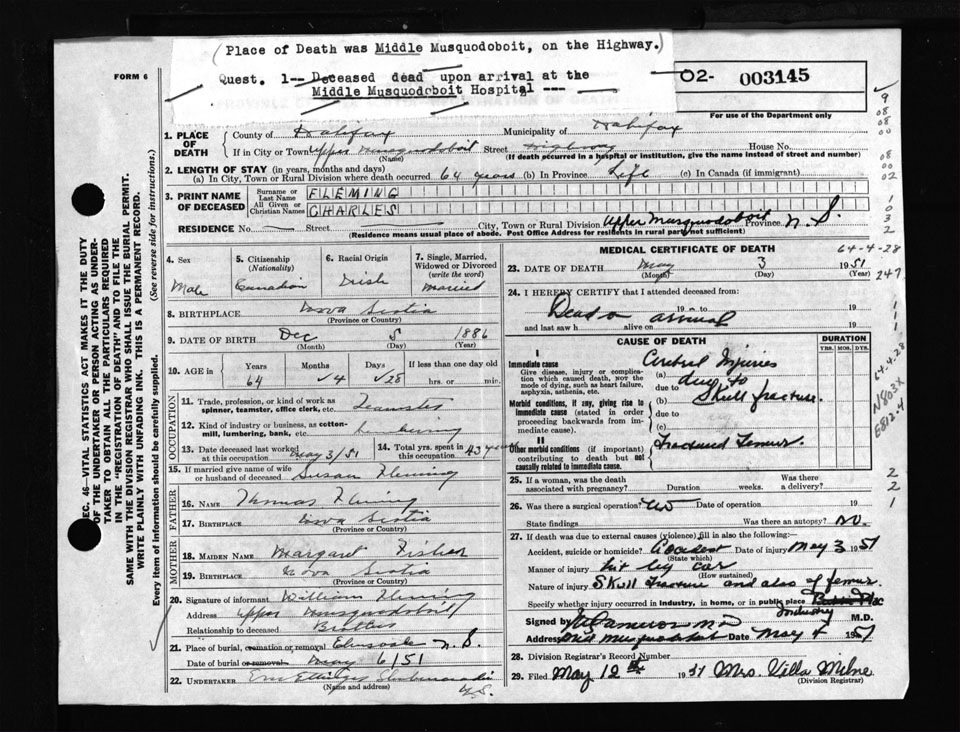 (Place of Death was Middle Musquodoboit, on the Highway.)
Quest. 1-- Deceased dead upon arrival at the
Middle Musquodoboit Hospital ---
FORM 6
02- 003145
For use of the Department only
1. PLACE OF DEATH
County of Halifax Municipality of Halifax
If in City or Town Upper Musquodoboit (Name) Street Highway House No.
(If death occurred in a hospital or institution, give the name instead of street and number)
2. LENGTH OF STAY (in years, months and days)
(a) In City, Town or Rural Division where death occurred 64 years (b) In Province Life (c) In Canada (if immigrant)
3. PRINT NAME OF DECEASED
Surname or Last Name FLEMING
All Given or Christian Names CHARLES
RESIDENCE No. Street City, Town or Rural Division Upper Musquodoboit Province N.S.
(Residence means usual place of abode. Post Office Address for residents in rural parts not sufficient)
4. Sex Male
5. Citizenship (Nationality) Canadian
6. Racial Origin Irish
7. Single, Married, Widowed or Divorced (write the word) Married
8. BIRTHPLACE Nova Scotia
(Province or Country)
9. DATE OF BIRTH Dec 5 1886
(Month) (Day) (Year)
10. AGE in Years 64 Months 4 Days 28 If less than one day old hrs. or min.
OCCUPATION
11. Trade, profession, or kind of work as spinner, teamster, office clerk, etc. Teamster
12. Kind of industry or business, as cotton-mill, lumbering, bank, etc. Lumbering
13. Date deceased last worked at this occupation May 3/51
14. Total yrs. spent in this occupation 43 years
15. If married give name of wife or husband of deceased Susan Fleming
FATHER
16. NAME Thomas Fleming
17. BIRTHPLACE Nova Scotia
(Province or Country)
MOTHER
18. MAIDEN NAME Margaret Fisher
19. BIRTHPLACE Nova Scotia
(Province or Country)
20. Signature of informant William Fleming
Address Upper Musquodoboit
Relationship to deceased Brother
21. Place of burial, cremation or removal N.S.
Date of burial or removal May 6/51
22. UNDERTAKER N.S.
(Name and address)
MEDICAL CERTIFICATE OF DEATH
64-4-28
23. DATE OF DEATH May 3 1951
(Month) (Day) (Year)
24. I HEREBY CERTIFY that I attended deceased from:
Dead on arrival
19 to 19
and last saw h alive on 19
CAUSE OF DEATH
DURATION
YRS. MOS. DYS.
I
Immediate cause
Give disease, injury or complication which caused death, not the mode of dying, such as heart failure, asphyxia, asthenia, etc.
(a) Cerebral Injuries
due to due to
(b) Skull fracture.
Morbid conditions, if any, giving rise to immediate cause (stated in order proceeding backwards from immediate cause).
due to
(c)
II
Other morbid conditions (if important) contributing to death but not causally related to immediate cause.
Fractured Femur.
25. If a woman, was the death associated with pregnancy? Duration weeks. Was there a delivery?
26. Was there a surgical operation? No Date of operation 19
State findings Was there an autopsy? No.
27. If death was due to external causes (violence) fill in also the following:—
Accident, suicide or homicide? Accident Date of injury May 3 1951
(State which)
Manner of injury hit by car
(How sustained)
Nature of injury Skull fracture and also of femur.
Specify whether injury occurred in industry, in home, or in public place
Industry
Signed by Cameron M.D.
Address Mid Musquodoboit Date May 1951
28. Division Registrar's Record Number
29. Filed May 12th 1951 Mrs. Villa Milne
(Division Registrar)
SEC. 46—VITAL STATISTICS ACT MAKES IT THE DUTY
OF THE UNDERTAKER OR PERSON ACTING AS UNDERTAKER TO OBTAIN ALL THE PARTICULARS REQUIRED
IN THE "REGISTRATION OF DEATH" AND TO FILE THE
SAME WITH THE DIVISION REGISTRAR WHO SHALL ISSUE THE BURIAL PERMIT.
WRITE PLAINLY WITH UNFADING INK. THIS IS A PERMANENT RECORD.
Every item of information should be carefully supplied. (See reverse side for instructions.)
9
08
08
00
08
00
02
1
0
3
2
247
1
1
1
64-4-28
N803X
E812.4
2
2
1